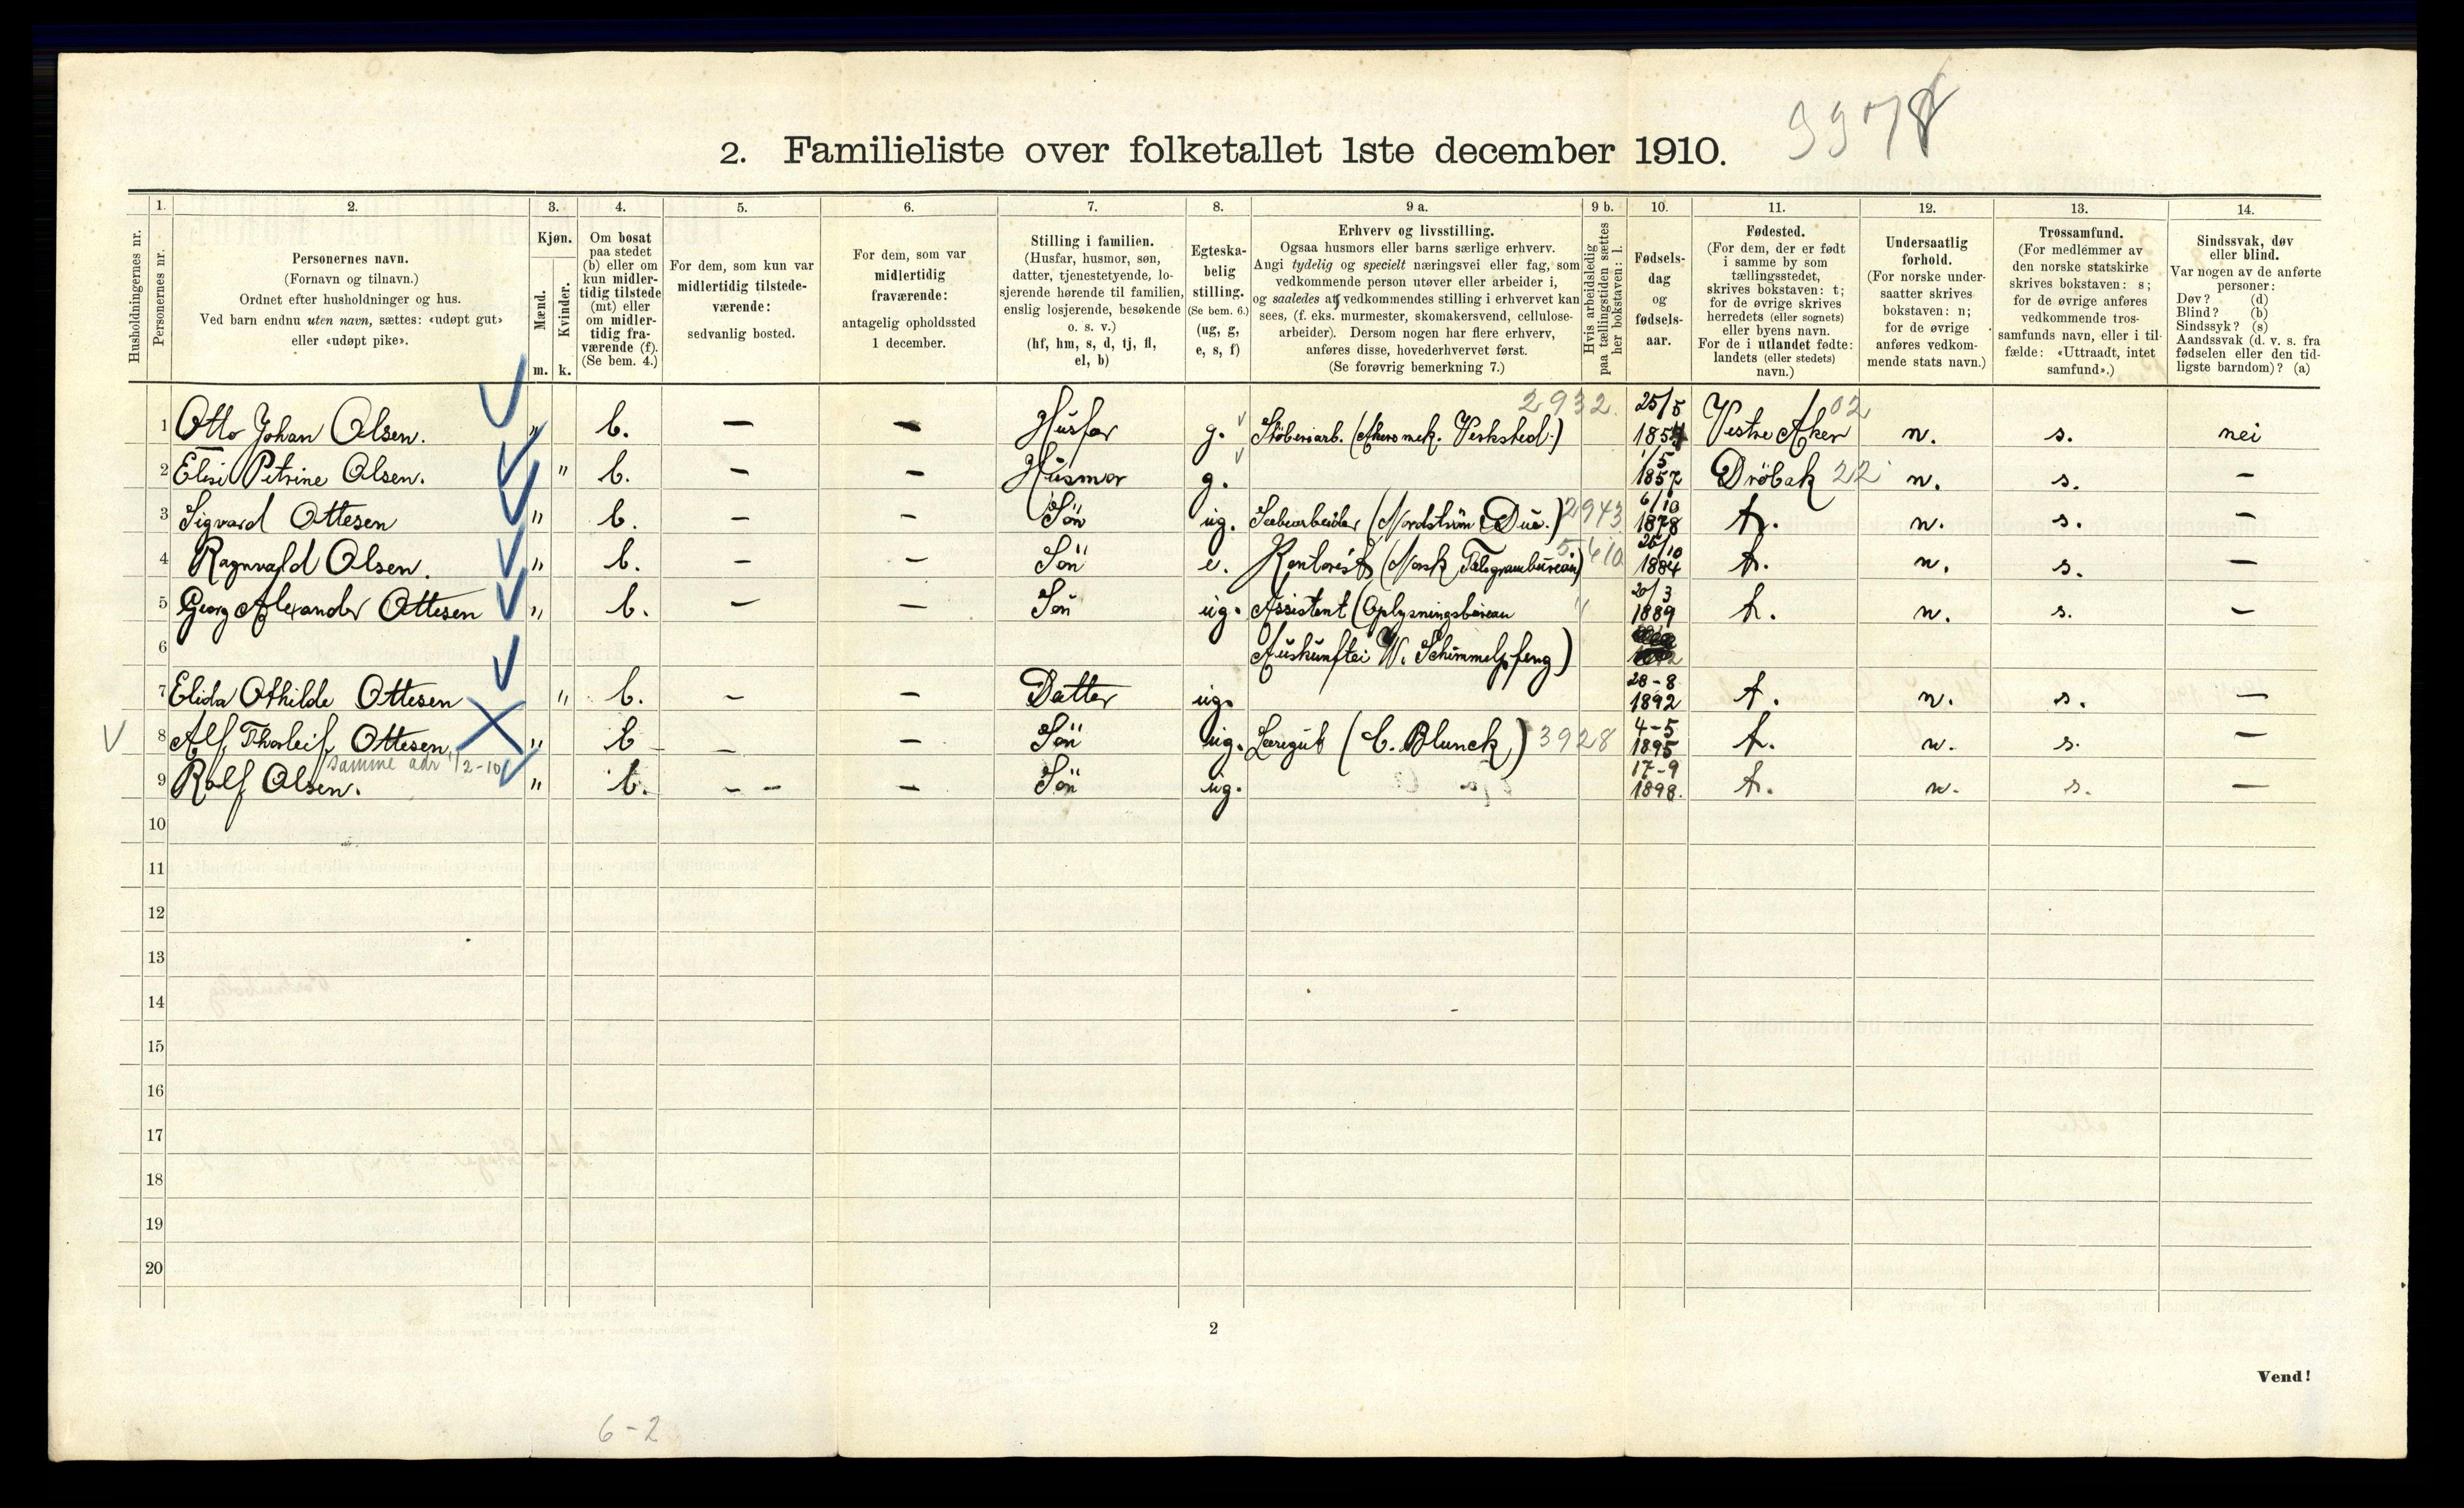 9978
2. Familieliste over folketallet 1ste december 1910.
1. 2. 3. 4. 5. 6. 7. 8. 9 a. 9 b. 10. 11. 12. 13. 14.
Husholdningernes nr.
Personernes nr.
Personernes navn.
(Fornavn og tilnavn.)
Ordnet efter husholdninger og hus.
Ved barn endnu uten navn, sættes: «udøpt gut»
eller «udøpt pike».
Kjøn.
Mænd.
Kvinder.
m. k.
Om bosat
paa stedet
(b) eller om
kun midler-
tidig tilstede
(mt) eller
om midler-
tidig fra-
værende (f).
(Se bem. 4.)
For dem, som kun var
midlertidig tilstede-
værende:
sedvanlig bosted.
For dem, som var
midlertidig
fraværende:
antagelig opholdssted
1 december.
Stilling i familien.
(Husfar, husmor, søn,
datter, tjenestetyende, lo-
sjerende hørende til familien,
enslig losjerende, besøkende
o. s. v.)
(hf, hm, s, d, tj, fl,
el, b)
Egteska-
belig
stilling.
(Se bem. 6.)
(ug, g,
e, s, f)
Erhverv og livsstilling.
Ogsaa husmors eller barns særlige erhverv.
Angi tydelig og specielt næringsvei eller fag, som
vedkommende person utøver eller arbeider i,
og saaledes at vedkommendes stilling i erhvervet kan
sees, (f. eks. murmester, skomakersvend, cellulose-
arbeider). Dersom nogen har flere erhverv,
anføres disse, hovederhvervet først.
(Se forøvrig bemerkning 7.)
Hvis arbeidsledig
paa tællingstiden sættes
her bokstaven: l.
Fødsels-
dag
og
fødsels-
aar.
Fødested.
(For dem, der er født
i samme by som
tællingsstedet,
skrives bokstaven: t;
for de øvrige skrives
herredets (eller sognets)
eller byens navn.
For de i utlandet fødte:
landets (eller stedets)
navn.)
Undersaatlig
forhold.
(For norske under-
saatter skrives
bokstaven: n;
for de øvrige
anføres vedkom-
mende stats navn.)
Trossamfund.
(For medlemmer av
den norske statskirke
skrives bokstaven: s;
for de øvrige anføres
vedkommende tros-
samfunds navn, eller i til-
fælde: «Uttraadt, intet
samfund».)
Sindssvak, døv
eller blind.
Var nogen av de anførte
personer:
Døv? (d)
Blind? (b)
Sindssyk? (s)
Aandssvak (d. v. s. fra
fødselen eller den tid-
ligste barndom)? (a)
2932. 25/5 02
1 Otto Johan Olsen. " b. — — Husfar g. Støberiarb. (Akers mek. Verksted.) 1854 Vestre Aker n. s. nei
1/5
2 Elisi Petrine Olsen. " b. — — Husmor g. 1857 Drøbak 22 n. s. —
6/10
3 Sigvard Ottesen " b. — — Søn ug. Sæbearbeider (Nordstrøm & Due.) 2943 1878 t. n. s. —
5610 26/10
4 Ragnvald Olsen. " b. — — Søn e. Kontorist (Norsk Telegrambureau) 1884 t. n. s. —
20/3
5 Georg Alexander Ottesen " b. — — Søn ug. Assistent (Oplysningsbureau 1889 t. n. s. —
6 Auskunftei W. Schimmelpfeng)
28-8
7 Elida Othilde Ottesen " b. — — Datter ug. 1892 t. n. s. —
4-5
8 Alf Thorleif Ottesen " b — — Søn ug. Læregut (C. Blunck) 3928 1895 t. n. s. —
samme adr 1/2-10 17-9
9 Ralf Olsen. " b. — — — Søn ug. 1898. t. n. s. —
10
11
12
13
14
15
16
17
18
19
20
2
Vend!
6-2